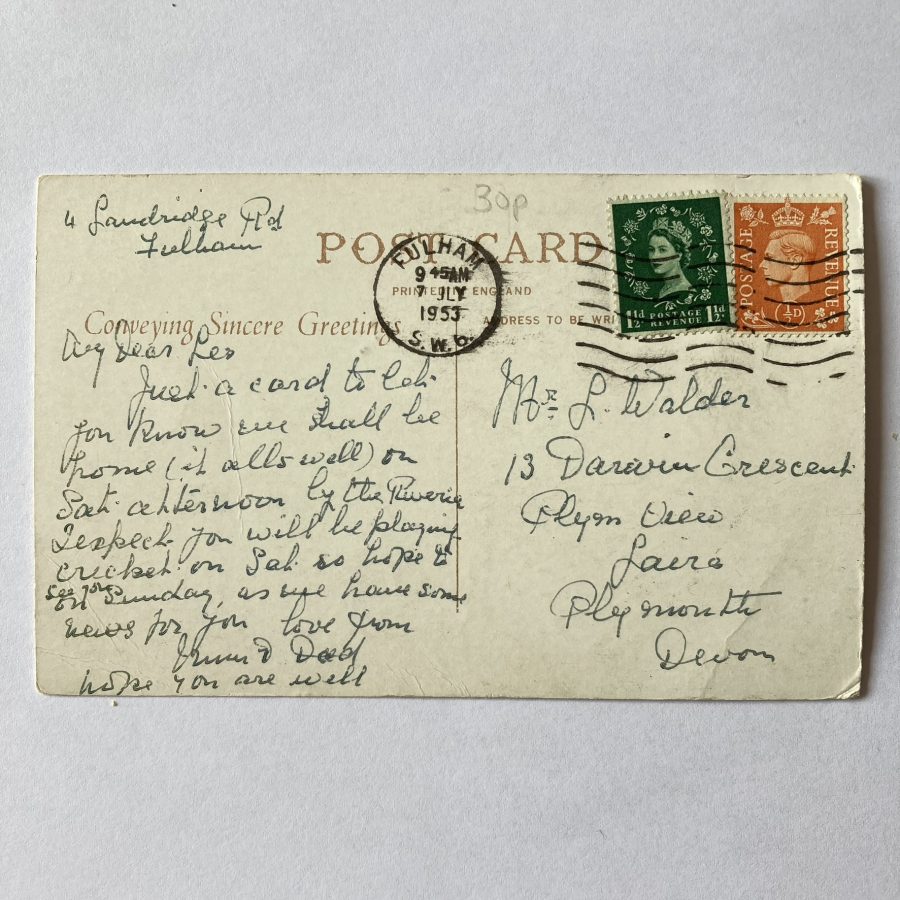 30p
4 Landridge Rd
Fulham
POST CARD
PRINTED IN ENGLAND
Conveying Sincere Greetings
ADDRESS TO BE WRI
FULHAM
9 45AM
7 JLY
1953
S.W.6.
1½d POSTAGE REVENUE 1½d
POSTAGE
REVENUE
½D
My Dear Les
Just a card to let
you know we shall be
home (if alls well) on
Sat afternoon by the Riveria
I expect you will be playing
cricket on Sat so hope to
see you
on Sunday, as we have some
news for you love from
Mum & Dad
hope you are well
Mr. L. Walder
13 Darwin Crescent
Plym View
Laira
Plymouth
Devon